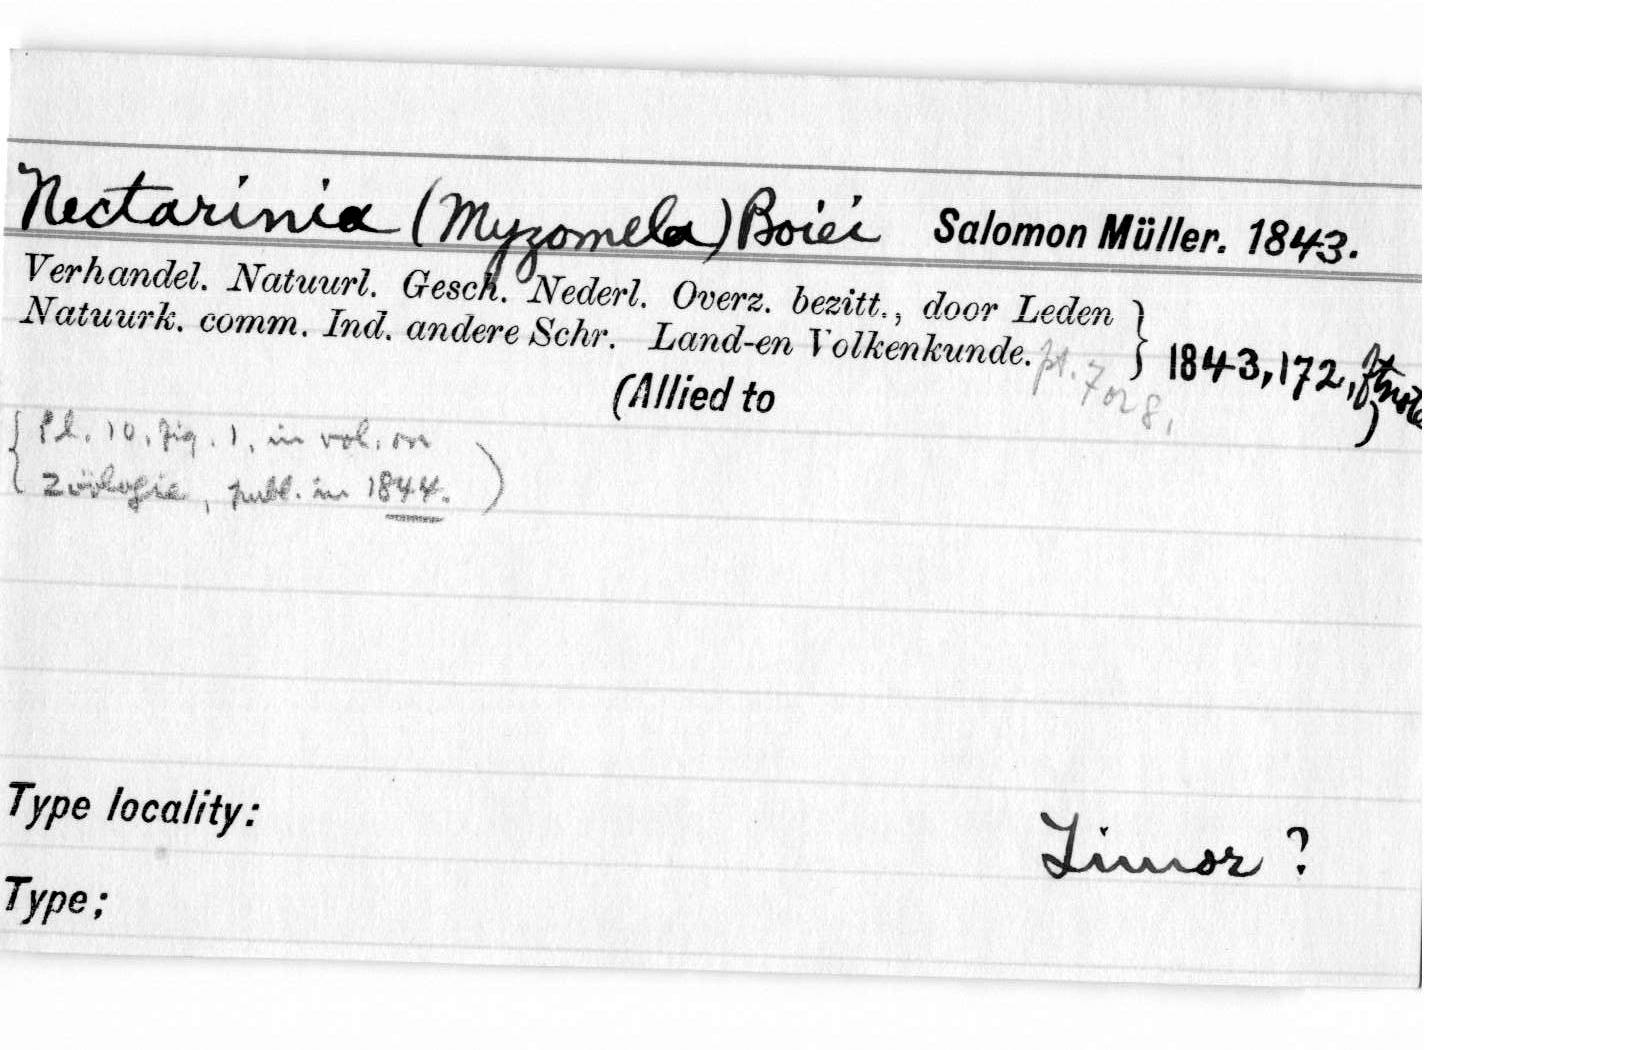 Nectarinia (Myzomela) Boiei Salomon Müller. 1843.
Verhandel. Natuurl. Gesch. Nederl. Overz. bezitt., door Leden
Natuurk. comm. Ind. andere Schr. Land-en Volkenkunde. } 1843, 172, ftnote
pt. 7 or 8,
(Allied to )
{ Pl. 10, fig. 1, in vol. on
Zoölogie, publ. in 1844. )
Type locality: Timor ?
Type;